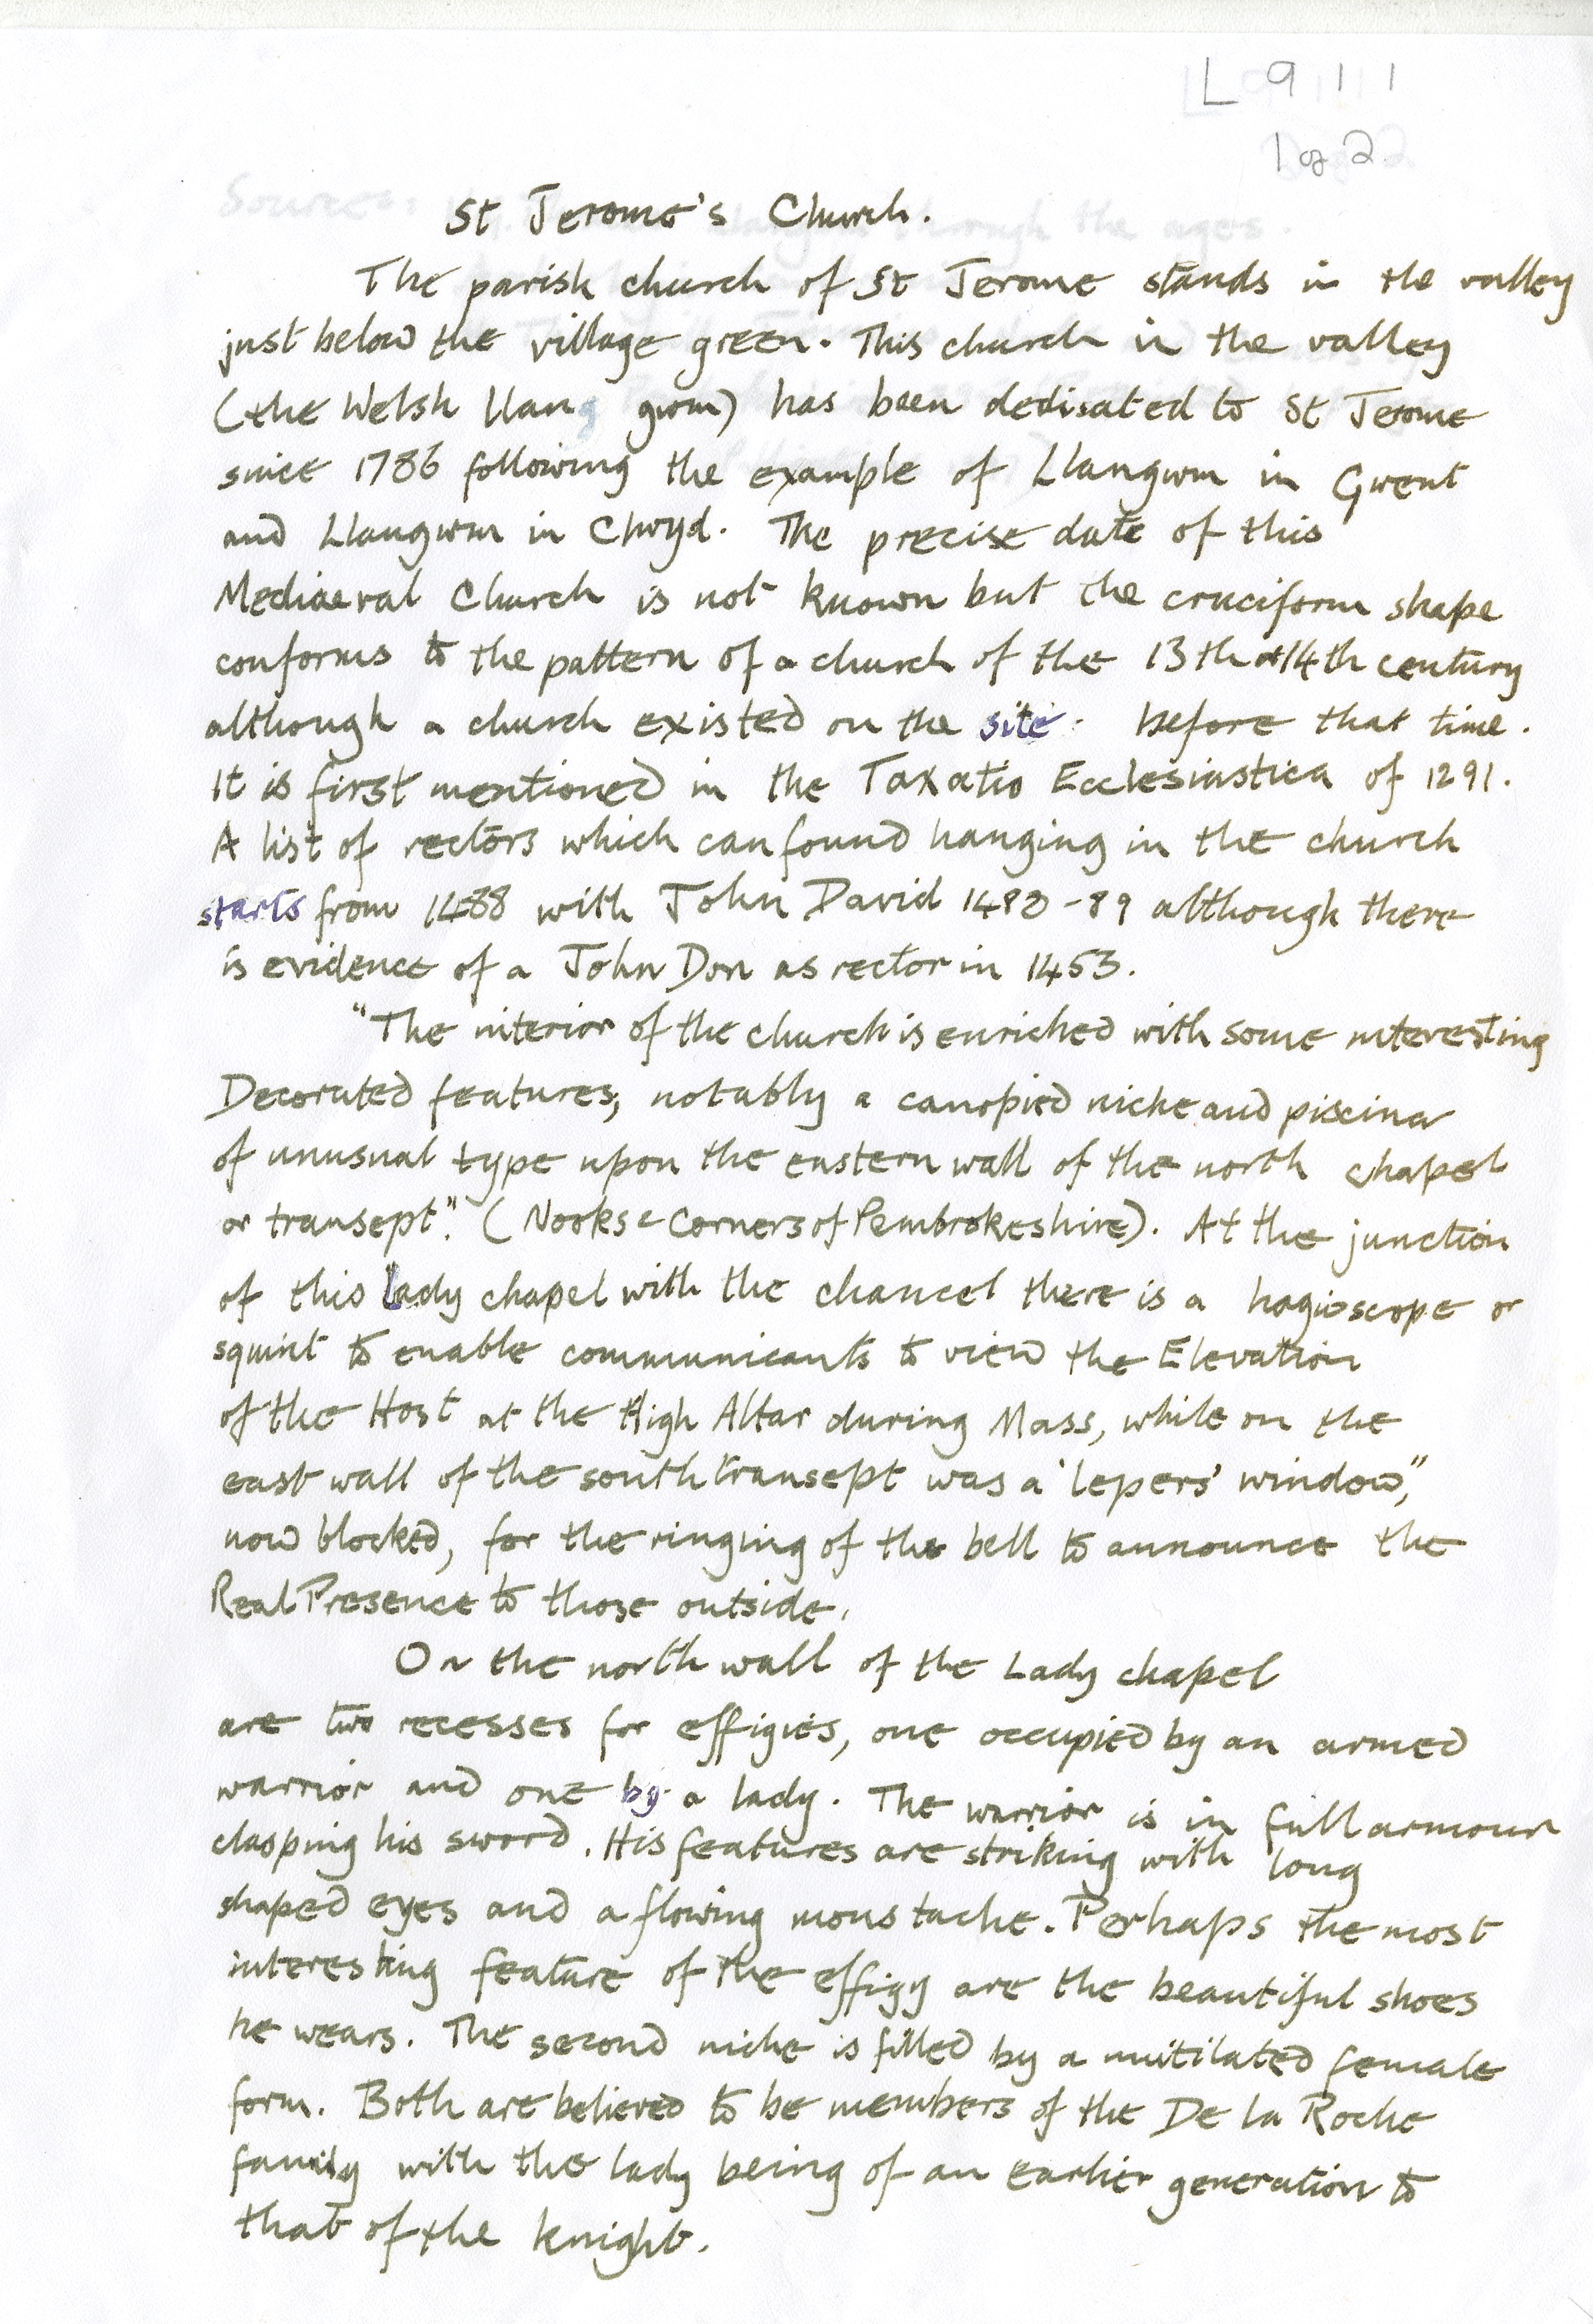 L 9 1 1
1 of 2
St Jerome's Church.
The parish church of St Jerome stands in the valley
just below the village green. This church in the valley
(the Welsh llang gwm) has been dedicated to St Jerome
since 1786 following the example of Llangwm in Gwent
and Llangwm in Clwyd. The precise date of this
Mediaeval Church is not known but the cruciform shape
conforms to the pattern of a church of the 13th or 14th century
although a church existed on the site. before that time.
It is first mentioned in the Taxatio Ecclesiastica of 1291.
A list of rectors which can found hanging in the church
starts from 1488 with John David 1488-89 although there
is evidence of a John Don as rector in 1453.
"The interior of the church is enriched with some interesting
Decorated features, notably a canopied niche and piscina
of unusual type upon the eastern wall of the north chapel
or transept". (Nooks & Corners of Pembrokeshire). At the junction
of this lady chapel with the chancel there is a hagioscope or
squint to enable communicants to view the Elevation
of the Host at the High Altar during Mass, while on the
east wall of the south transept was a 'lepers' window",
now blocked, for the ringing of the bell to announce the
Real Presence to those outside.
On the north wall of the Lady chapel
are two recesses for effigies, one occupied by an armed
warrior and one by a lady. The warrior is in full armour
clasping his sword. His features are striking with long
shaped eyes and a flowing moustache. Perhaps the most
interesting feature of the effigy are the beautiful shoes
he wears. The second niche is filled by a mutilated female
form. Both are believed to be members of the De la Roche
family with the lady being of an earlier generation to
that of the knight.